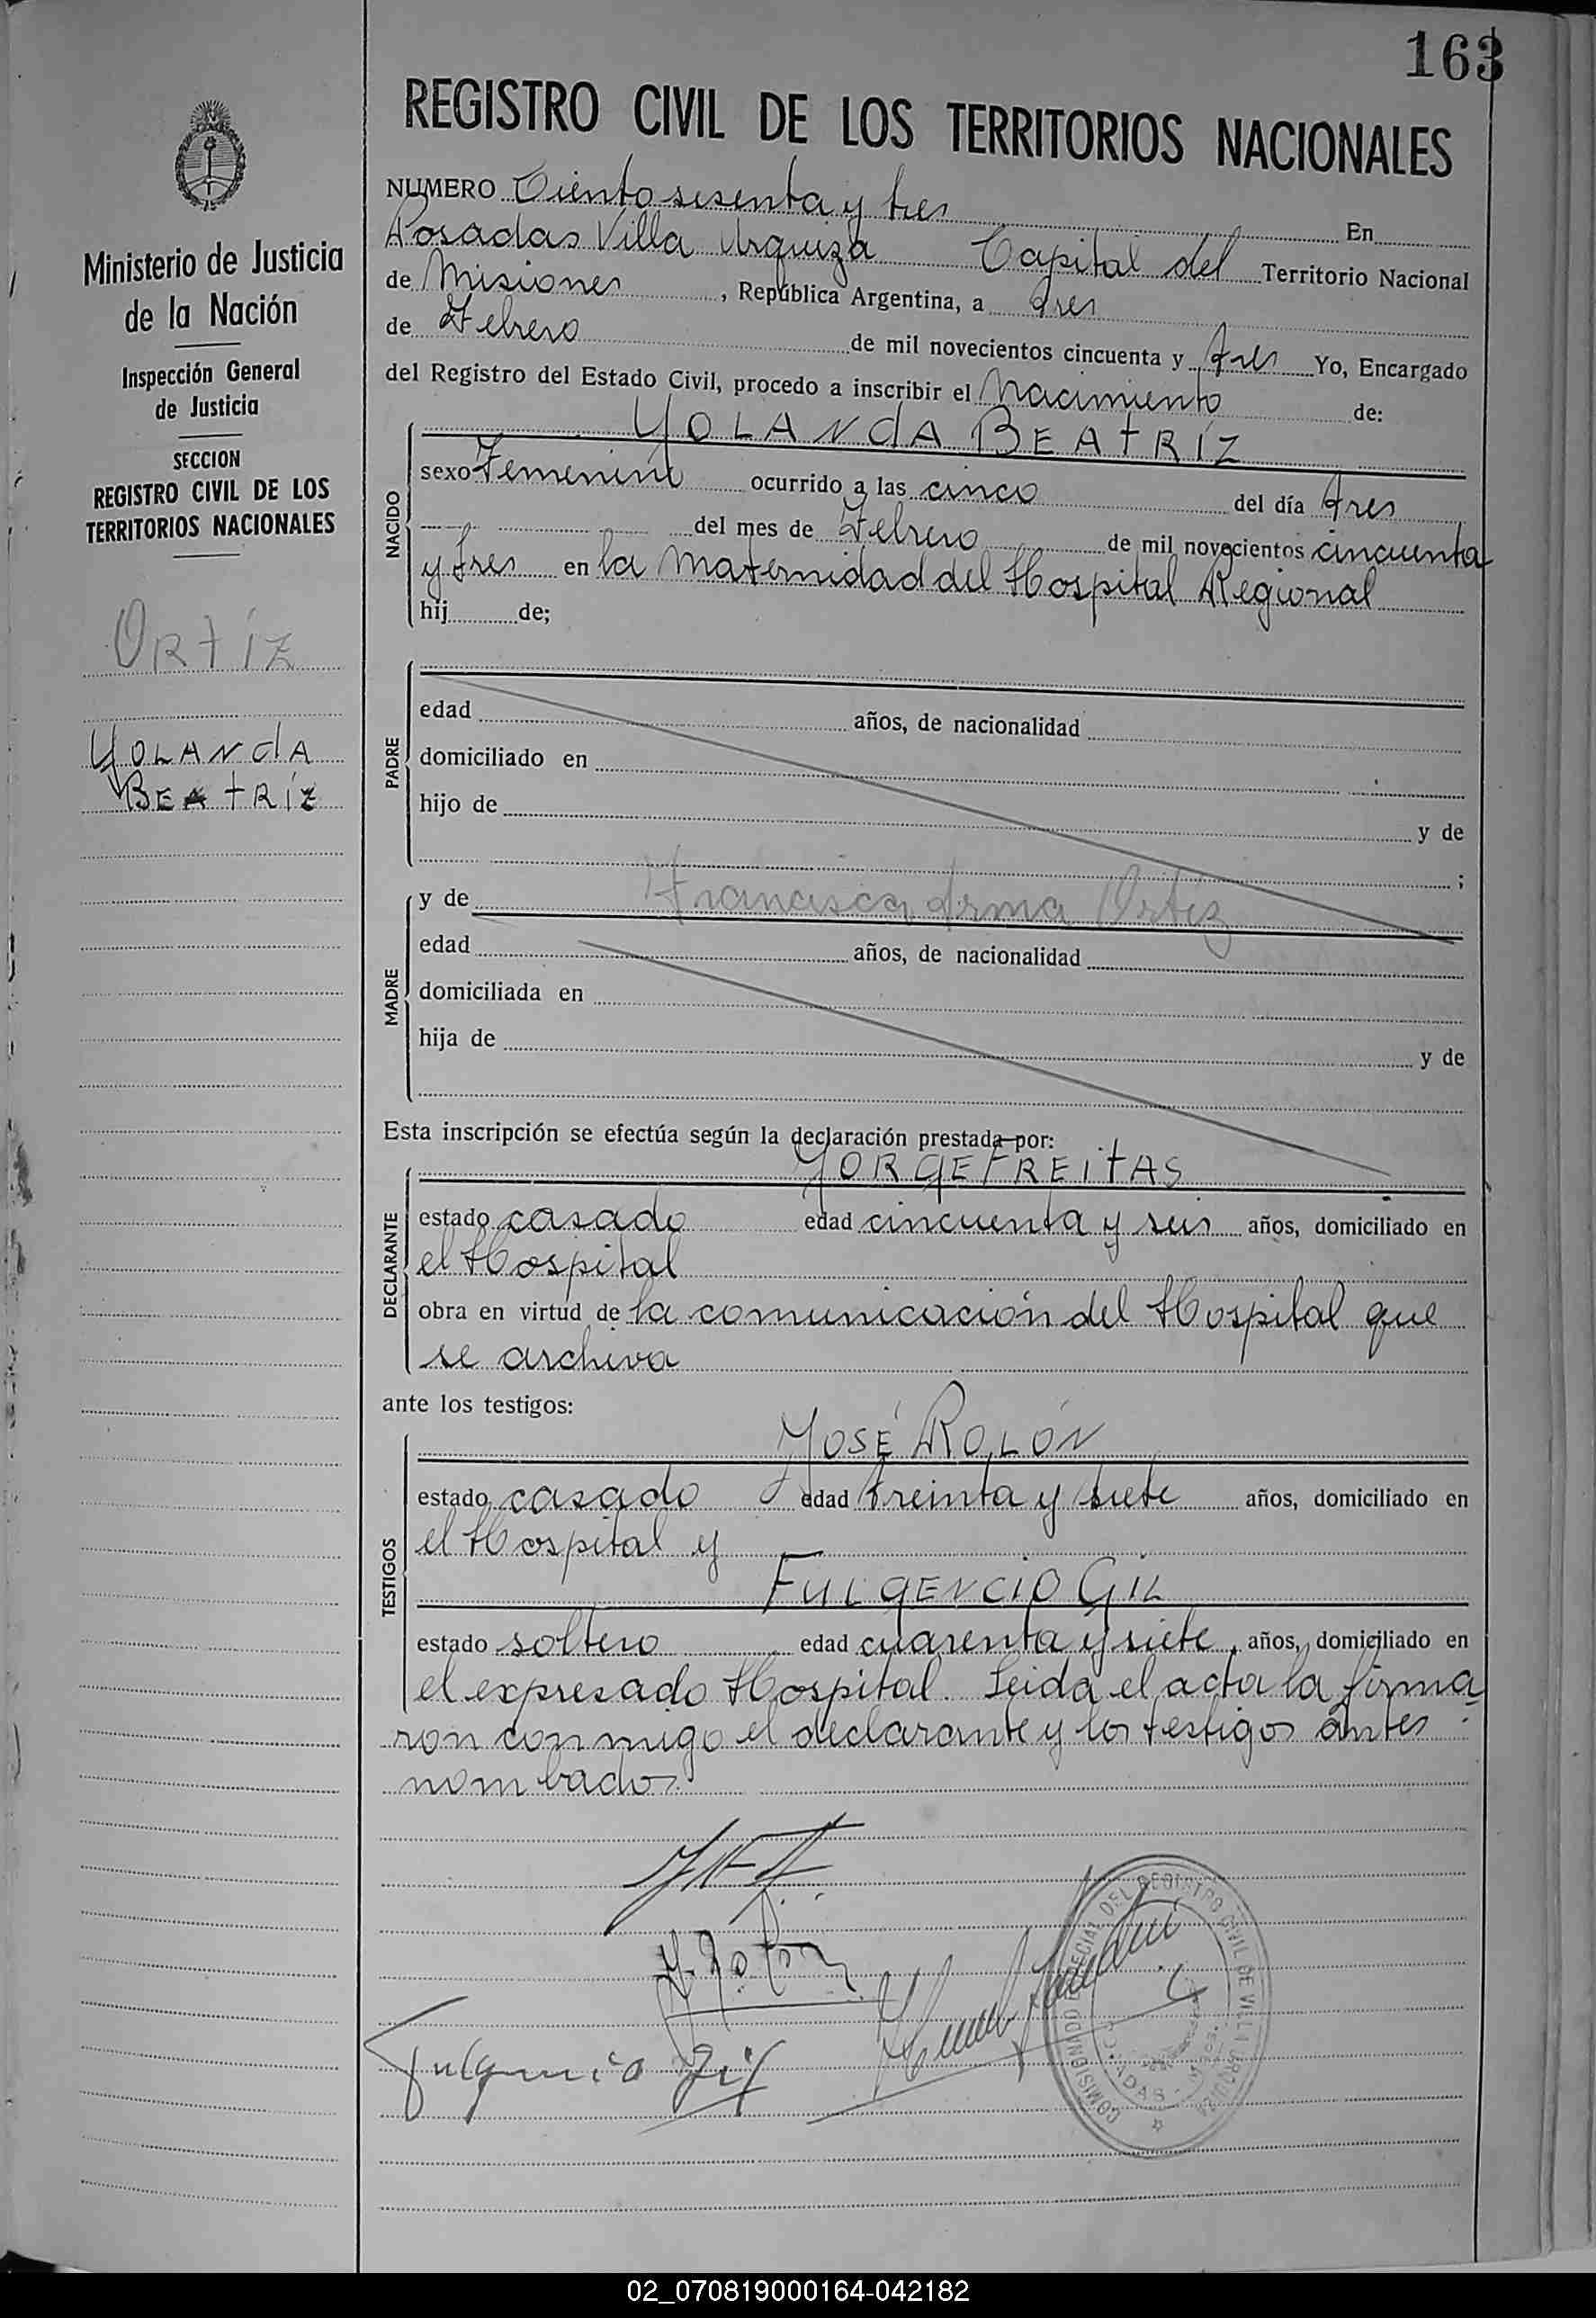 163
REGISTRO CIVIL DE LOS TERRITORIOS NACIONALES
Ministerio de Justicia
de la Nación
Inspección General
de Justicia
SECCION
REGISTRO CIVIL DE LOS
TERRITORIOS NACIONALES
ORTÍZ
YOLANdA
BEATRÍZ
NUMERO Ciento sesenta y tres En
Posadas Villa Urquiza Capital del Territorio Nacional
de Misiones, República Argentina, a tres
de Febrero de mil novecientos cincuenta y tres Yo, Encargado
del Registro del Estado Civil, procedo a inscribir el Nacimiento de:
NACIDO
YOLANdA BEATRÍZ
sexo Femenino ocurrido a las cinco del día tres
del mes de Febrero de mil novecientos cincuenta
y tres en la Maternidad del Hospital Regional
hij de;
PADRE
edad años, de nacionalidad
domiciliado en
hijo de y de
;
MADRE
y de Francisca Irma Ortiz
edad años, de nacionalidad
domiciliada en
hija de y de
Esta inscripción se efectúa según la declaración prestada por:
DECLARANTE
JORGE FREITAS
estado casado edad cincuenta y seis años, domiciliado en
el Hospital
obra en virtud de la comunicación del Hospital que
se archiva
ante los testigos:
TESTIGOS
JOSÉ ROLÓN
estado casado edad treinta y siete años, domiciliado en
el Hospital y
FULGENCIO GIL
estado soltero edad cuarenta y siete, años, domiciliado en
el expresado Hospital. Leida el acta la firma
ron conmigo el declarante y los testigos antes
nombados.
J. Rolón
Fulgencio Gil
COMISIONADO ESPECIAL DEL REGISTRO CIVIL DE VILLA URQUIZA
02_070819000164-042182